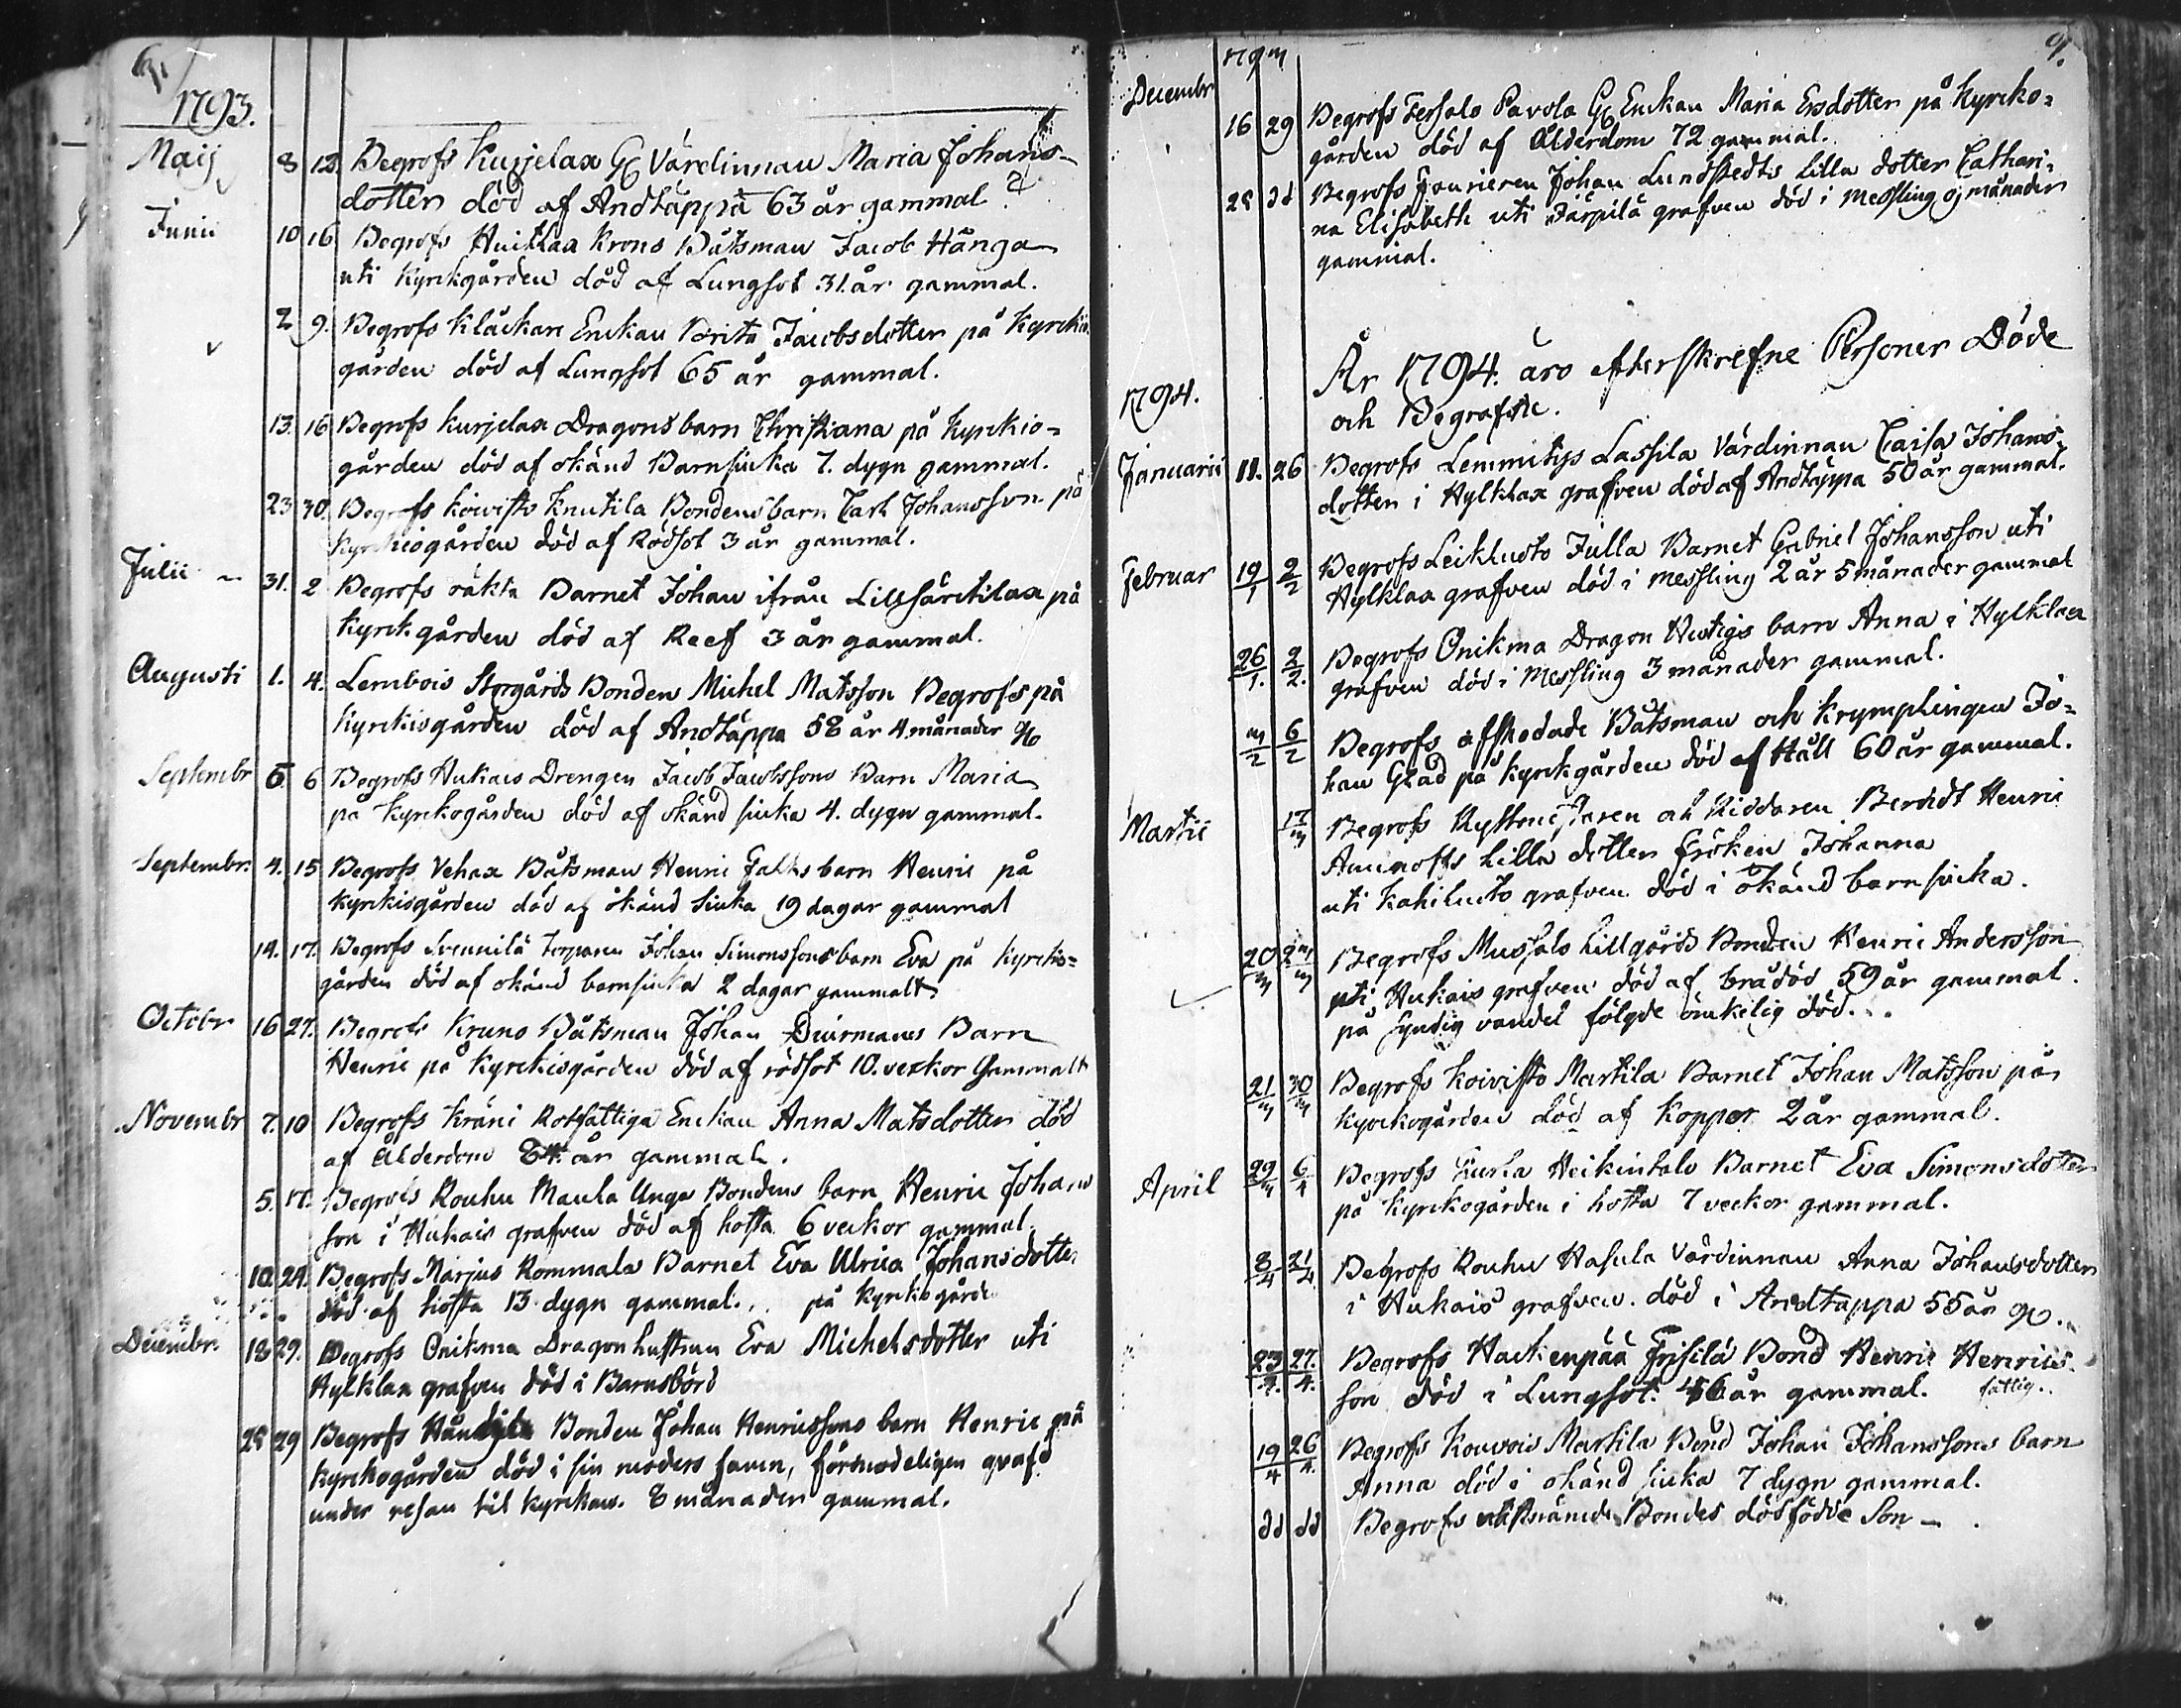 1793.
Maij 8 12. Begrofs Kurjelax Gl Värdinnan Maria Johans-
dotter död af Andtäppa 63 år gammal
Junii 10 16 Begrofs Huitlax Krono Båtsman Jacob Hånga
uti Kyrkgården död af Lungsot 31. år gammal.
2 9. Begrofs Klåckare Enckan Brita Jacobsdotter på Kyrckio
gården död af Lungsot 65 år gammal.
13. 16 Begrofs Kurjelax Dragons barn Christiana på Kyrckio=
gården död af okänd Barnsiuka 7. dygn gammal.
23 30. Begrofs Koivisto Knutila Bondens barn Carl Johansson på
Kyrckiogården död af Rödsot 3 år gammal.
Julii 31. 2 Begrofs oäkta Barnet Johan ifrån Lillsärkilax på
Kyrckgården död af Reef 3 år gammal.
Augusti 1. 4. Lembois Storgårds Bonden Michel Matsson Begrofs på
Kyrckiogården död af Andtäppa 58 år 4 månader
Septembr 5. 6 Begrofs Hukais Drengen Jacob Jacobssons Barn Maria
på Kyrckogården död af okänd siuka 4. dygn gammal.
Septembr. 4. 15 Begrofs Vehax Båtsman Henric Falks barn Henric på
Kyrckiogården död af okänd siuka 19 dagar gammal
14. 17. Begrofs Svennilä torparen Johan Simonssons barn Eva på Kyrckio=
gården död af okänd barnsiuka 2 dagar gammalt
Octobr 16 27. Begrofs Krono Båtsman Johan Diurmans Barn
Henric på Kyrckiogården död af rödsot 10. veckor Gammalt
Novembr 7. 10 Begrofs Kräni Rotfattiga Enckan Anna Matsdotter död
af Ålderdom 84. år gammal.
5. 17. Begrofs Rouhu Maula Unga Bondens barn Henric Johans
son i Hukais grafven död af hosta 6 veckor gammal.
10. 24. Begrofs Marjus Rommala Barnet Eva Ulrica Johansdotter
död af hosta 13 dygn gammal. på Kyrckogården
Decembr. 18 29. Begrofs Onikma Dragon hustrun Eva Michelsdotter uti
Hylklax grafven död i Barnsbörd
25 29 Begrofs Bonden Johan Henricssons barn Henric på
Kyrckogården död i sin moders famn, förmodeligen qvafd
under resan til Kyrckan. 8 månader gammal.
9.
Decembr
16 29 Begrofs Tersalo Pavola Gl Enckan Maria Ersdotter på Kyrcko=
gården död af Ålderdom 72 gammal.
25 dd Begrofs Fourieren Johan Lundstedts Lilla dotter Cathari=
na Elisabeth uti Järpilä grafven död i Messling 9 månader
gammal.
1794. År 1794. äro efterskrefne Personer Döde
och Begrafne.
Januarii 11. 26 Begrofs Lemmitys Lassila Värdinnan Caisa Johans-
dotter i Hylklax grafven död af Andtäppa 50 år gammal.
Februar 19/1 2/2 Begrofs Leikluoto Julla Barnet Gabriel Johansson uti
Hylklax grafven död i Messling 2 år 5 månader gammal
26/1. 2/2. Begrofs Onikma Dragon Hurtigs barn Anna i Hylklax
grafven död i Messling 3 månader gammal.
3/2 6/2 Begrofs afskedade Båtsman och Krymplingen Jo=
han Glad på Kyrckgården död af Håll 60 år gammal.
Martii 17/3 Begrofs Ryttmestaren och Riddaren Berndt Henric
Aminoffs Lilla dotter Fröken Johanna
uti Kahiluoto grafven död i okänd barnsiuka.
20/3 23/3 Begrofs Mussalo Lillgårds Bonden Henric Andersson
uti Hukais grafven död af brådöd 59 år gammal.
på Syndig vandel följde ömkelig död...
21/3 30/3 Begrofs Koivisto Martila Barnet Johan Matsson på
Kyrckogården död af Koppor 2 år gammal.
April 29/3 6/4 Begrofs Heikintalo Barnet Eva Simonsdotter
på Kyrckogården i hosta 7 veckor gammal.
8/4 21/4 Begrofs Rouhu Hasula Värdinnan Anna Johansdotter
i Hukais grafven. död i Andtäppa 55 år
23/4. 27./4. Begrofs Hackenpää Frisilä Bond Henric Henrics-
son död i Lungsot. 46 år gammal. fattig..
19/4 26/4. Begrofs Kouvois Martila Bond Johan Johanssons barn
Anna död i okänd siuka 7 dygn gammal.
dd dd Begrofs Bondes dödfödde Son -